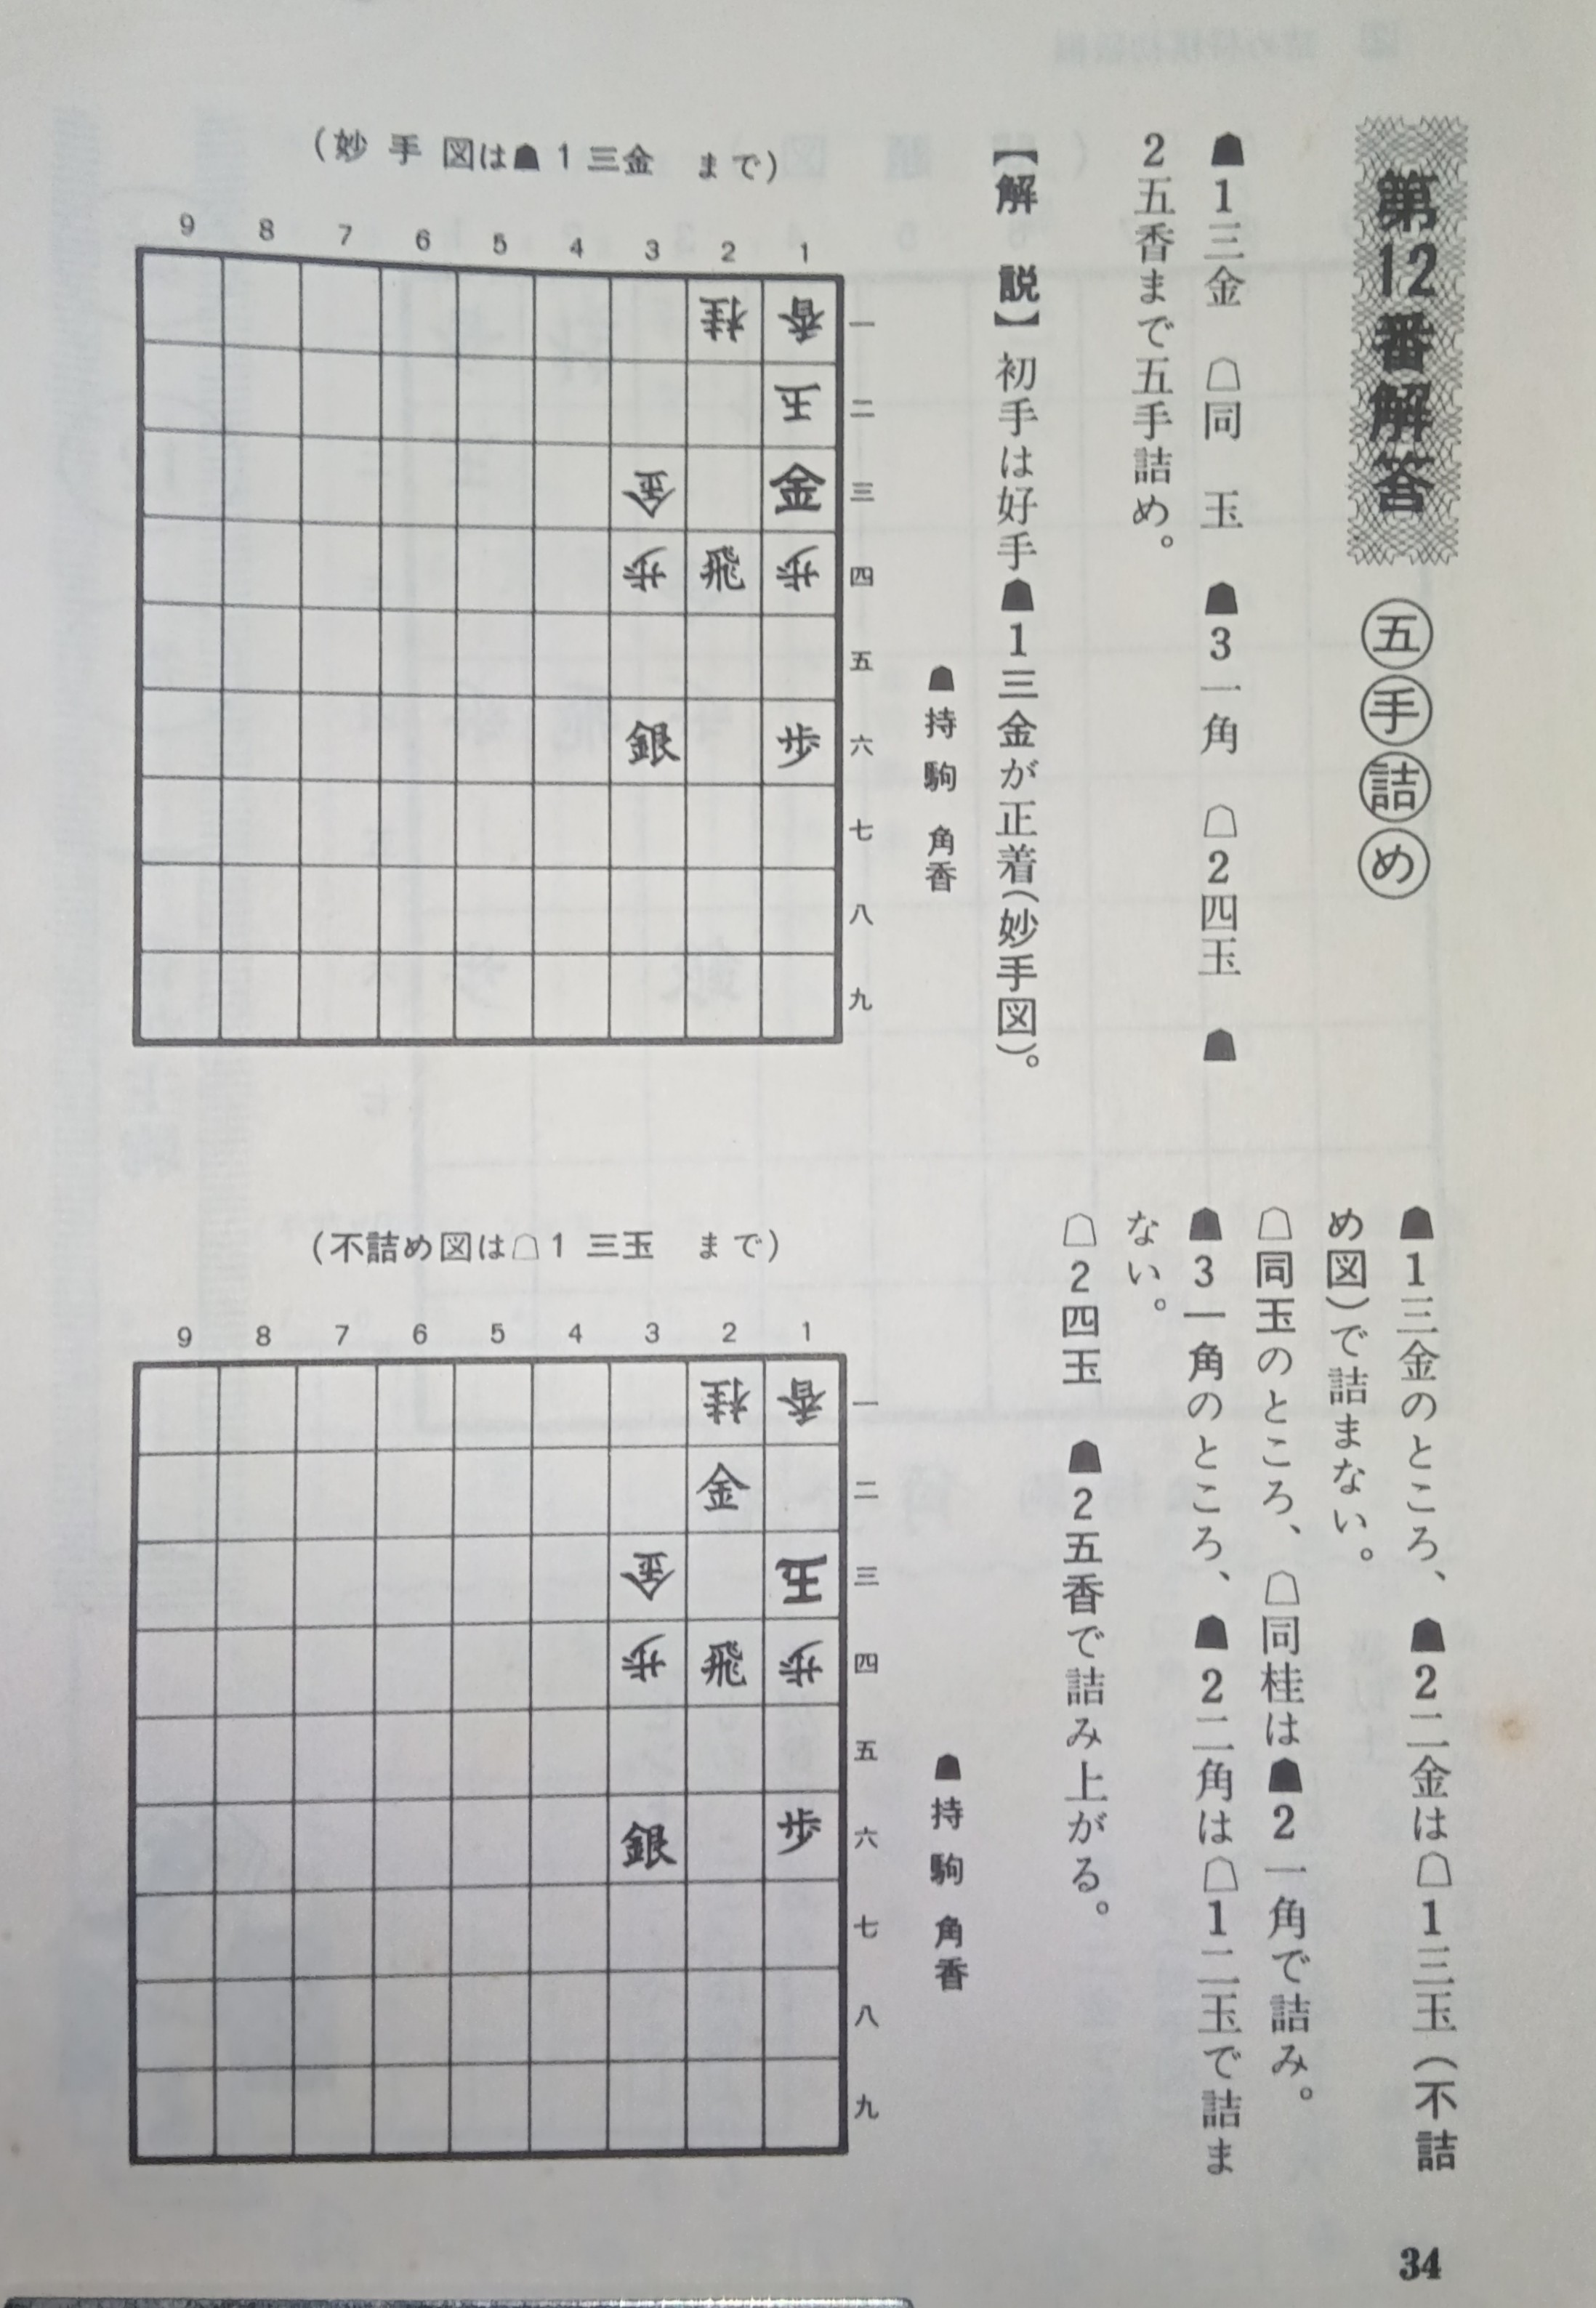 第12番解答
五手詰め
☗1三金 ☖同 玉 ☗3一角 ☖2四玉 ☗
2五香まで五手詰め。
【解 説】初手は好手☗1三金が正着(妙手図)。
☗持駒 角香
(妙手図は☗1三金 まで)
9 8 7 6 5 4 3 2 1
桂 香 一
王 二
金 金 三
歩 飛 歩 四
五
銀 歩 六
七
八
九
☗1三金のところ、☗2二金は☖1三玉(不詰
め図)で詰まない。
☖同玉のところ、☖同桂は☗2一角で詰み。
☗3一角のところ、☗2二角は☖1二玉で詰ま
ない。
☖2四玉 ☗2五香で詰み上がる。
☗持駒 角香
(不詰め図は☖1三玉 まで)
9 8 7 6 5 4 3 2 1
桂 香 一
金 二
金 王 三
歩 飛 歩 四
五
銀 歩 六
七
八
九
34